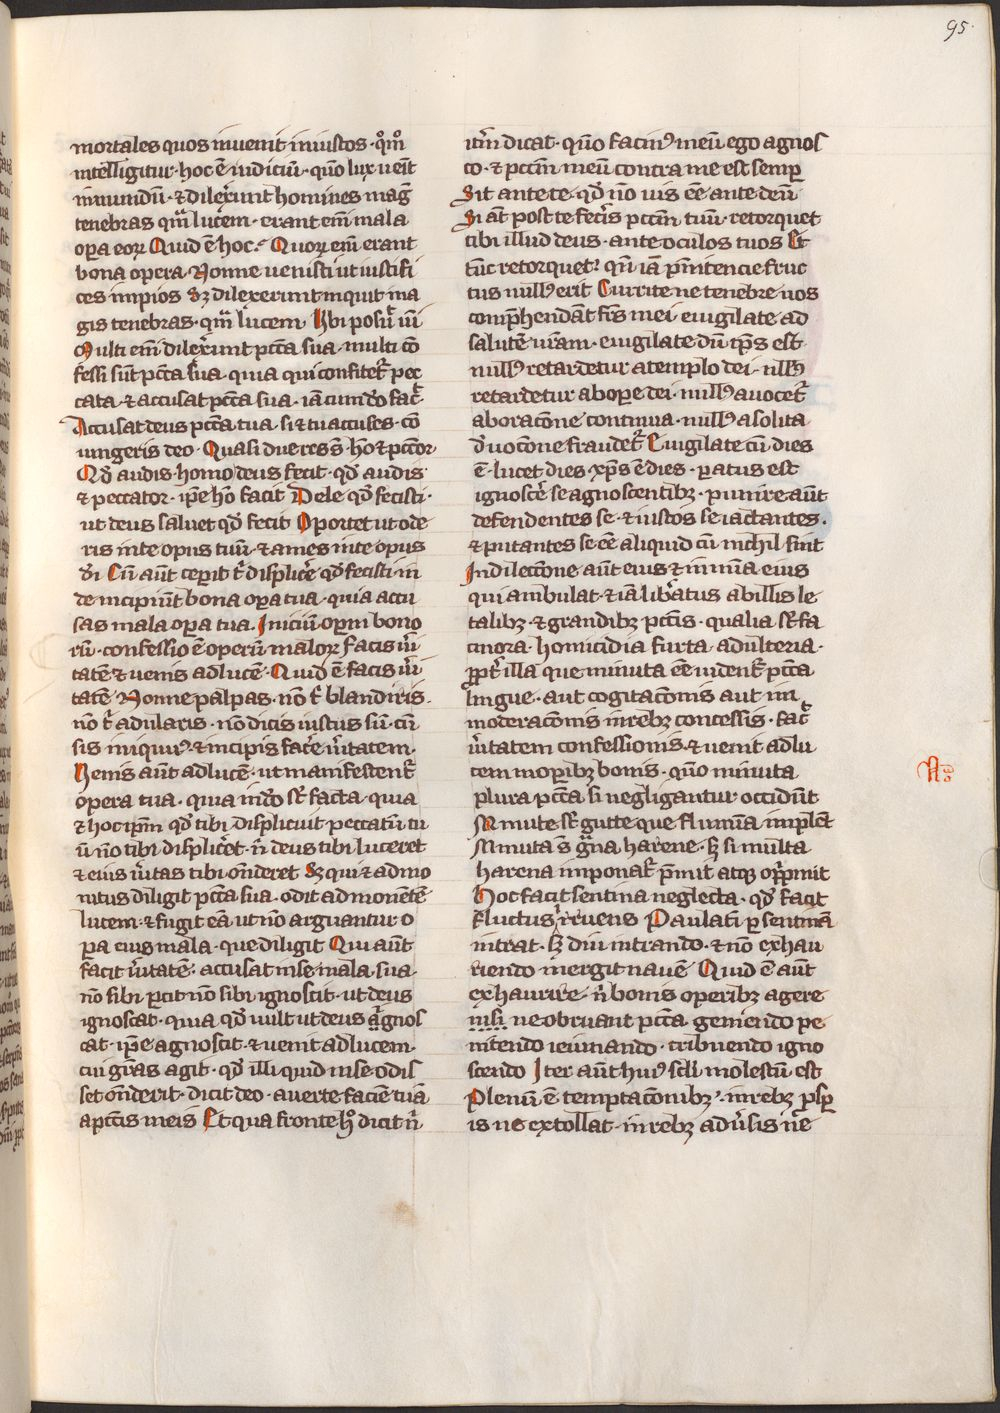 95.
mortales quos inuenit iniustos · qm̄o
intelligitur · hoc ē iudiciū · qm̄o lux uēit
in mundū · ⁊ dilexerūt homines maḡ
tenebras qm̄ lucem · erant em̄ mala
oꝑa eoꝝ Quid ē hoc · Quoꝝ em̄ erant
bona opera · Nonne uenisti ut iustifi
ces impios Sꝫ dilexerunt inquit ma
gis tenebras · qm̄ lucem Ubi posuit uī
Multi em̄ dilexerūt pctā sua · multi cō
fessi sūt pctā sua · quia qui confitet̄ pec
cata · ⁊ accusat pctā sua · iā cum deo fac̄
Accusat deus pctā tua · si ⁊ tu accuses · cō
iungeris deo · Quasi due res s̄ · hō ⁊ pctōr
Qd̄ audis homo deus fecit · qd̄ audis
⁊ peccator · ip̄e hō facit Dele qd̄ fecisti ·
ut deus saluet qd̄ fecit Oportet ut ode
ris in te opus tuū · ⁊ ames in te opus
dī Cū aūt ceperit t̄ displicēe qd̄ fecisti · in
de incipiūt bona oꝑa tua · quia accu
sas mala oꝑa tua · Iniciū oꝑm bono
rū · confessio ē operū maloꝝ facis ūi
tatē ⁊ uenis ad lucē · Quid ē facis ūi
tatē Nonne palpas · nō t̄ blandiris ·
nō t̄ adularis · nō dicis iustus sū · cū
sis iniquus · ⁊ incipis facēe ūitatem ·
Uenis aūt ad lucē · ut manifestent̄
opera tua · quia in deo st̄ facta · quia
⁊ hoc ip̄m qd̄ tibi displicuit peccatū tu
ū nō tibi displiceret · n̄ deus tibi luceret
⁊ eius ūitas tibi onderet Sꝫ qui ⁊ admo
nitus diligit pctā sua · odit admonētē
lucem · ⁊ fugit eā ut nō arguantur o
pera eius mala · que diligit Qui aūt
facit ūitatē · accusat in se mala sua ·
nō sibi ꝑcit nō sibi ignoscit · ut deus
ignoscat · quia qd̄ uult ut deus agnos
cat · ip̄e agnoscit · ⁊ uenit ad lucem ·
cui grās agit · qd̄ illi quid in se odis
set onderit · dicit deo · auerte faciē tuā
a pctīs meis Et qua fronte hō dicit n̄
itm̄ dicat · qm̄o facinꝰ meū ego agnos
co · ⁊ pctm̄ meū contra me est semꝑ
Sit ante te · qd̄ nō uis eē ante deū
Si āt post te feceris pctm̄ tuū · retorquet
tibi illud deus · ante oculos tuos Et
tūc retorquet · qn̄ iā penitencie fruc
tus nullꝰ erit Currite ne tenebre uos
compͤhendāt frs̄ mei · euigilate ad
salutē ur̄am · euigilate dū tp̄s est
nullꝰ retardetur a templo dei · nullꝰ
retardetur ab oꝑe dei · nullꝰ auocet̄
ab oracōne continua · nullꝰ a solita
deuocōne fraudet̄ Euigilate cū dies
ē · lucet dies · xp̄s ē dies · ꝑatus est
ignoscēe se agnoscentibꝫ · punire aūt
defendentes se · ⁊ iustos se iactantes ·
⁊ putantes se eē aliquid cū nichil sint
In dilectione aūt eius ⁊ in mīa eius
qui ambulat · ⁊ iā libāatus ab illis le
talibꝫ · ⁊ grandibꝫ pctīs · qualia st̄ fa
cinora · homicidia furta · adulteria ·
ꝓpt̄ illa que minuta eē uident̄ pctā
lingue · aut cogitacōnis aut im
moderacōnis in rebꝫ concessis · fac̄
ūitatem confessionis · ⁊ uenit ad lu
cem in oꝑibꝫ bonis · qm̄o minuta
plura pctā si negligantur occidūt
Minute st̄ gutte que flumīa implēt
Minuta s̄ gͣna harene · sꝫ si multa
harena imponat̄ pͤmit atqꝫ opprimit
Hoc facit sentina neglecta · qd̄ facit
fluctus irruens Paulatī ꝑ sentinā
intrat · sꝫ diu intrando · ⁊ nō exhau
riendo mergit nauē Quid ē aūt
exhaurire · n̄ bonis operibꝫ agere
nisi ne obruant pctā · gemendo pe
nitendo ieiunando · tribuendo igno
scendo Iter aūt huiꝰ sc̄li molestū est
Plenū ē temptacōnibꝫ · in rebꝫ pͤsꝑ
is ne extollat · in rebꝫ aduersis ne